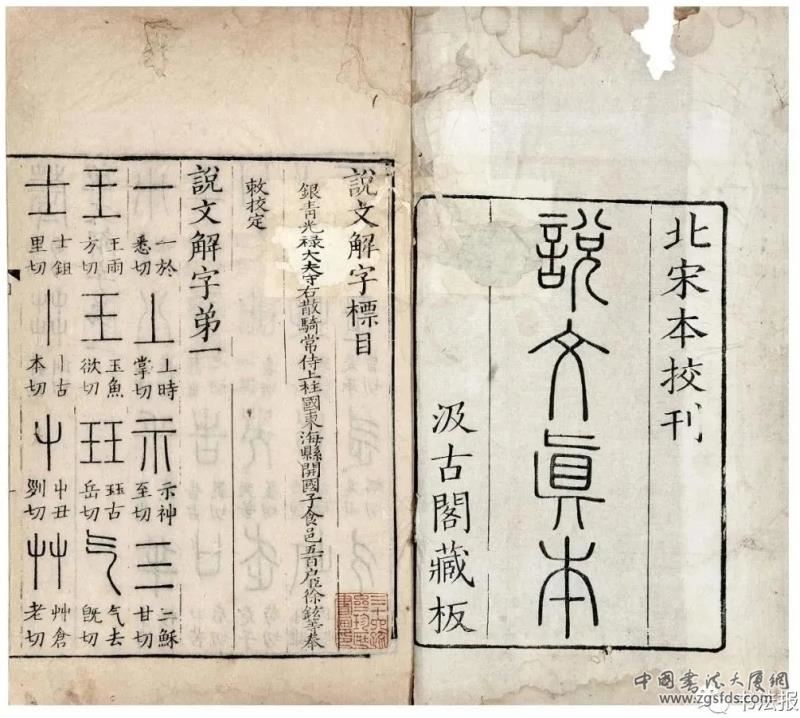 北宋本挍刊
說文眞本
汲古閣藏板
說文解字標目
銀青光祿大夫守右散騎常侍上柱國東海縣開國子食邑五百户臣徐鉉等奉
敕挍定
說文解字弟一
一 一於悉切 丄 上時掌切 示 示神至切 三 三穌甘切
王 王雨方切 王 玉魚欲切 玨 珏古岳切 气 气去旣切
士 士鉏里切 丨 丨古本切 屮 屮丑列切 艸 艸倉老切
中國書法大厦網
www.zgsfds.com
书法报